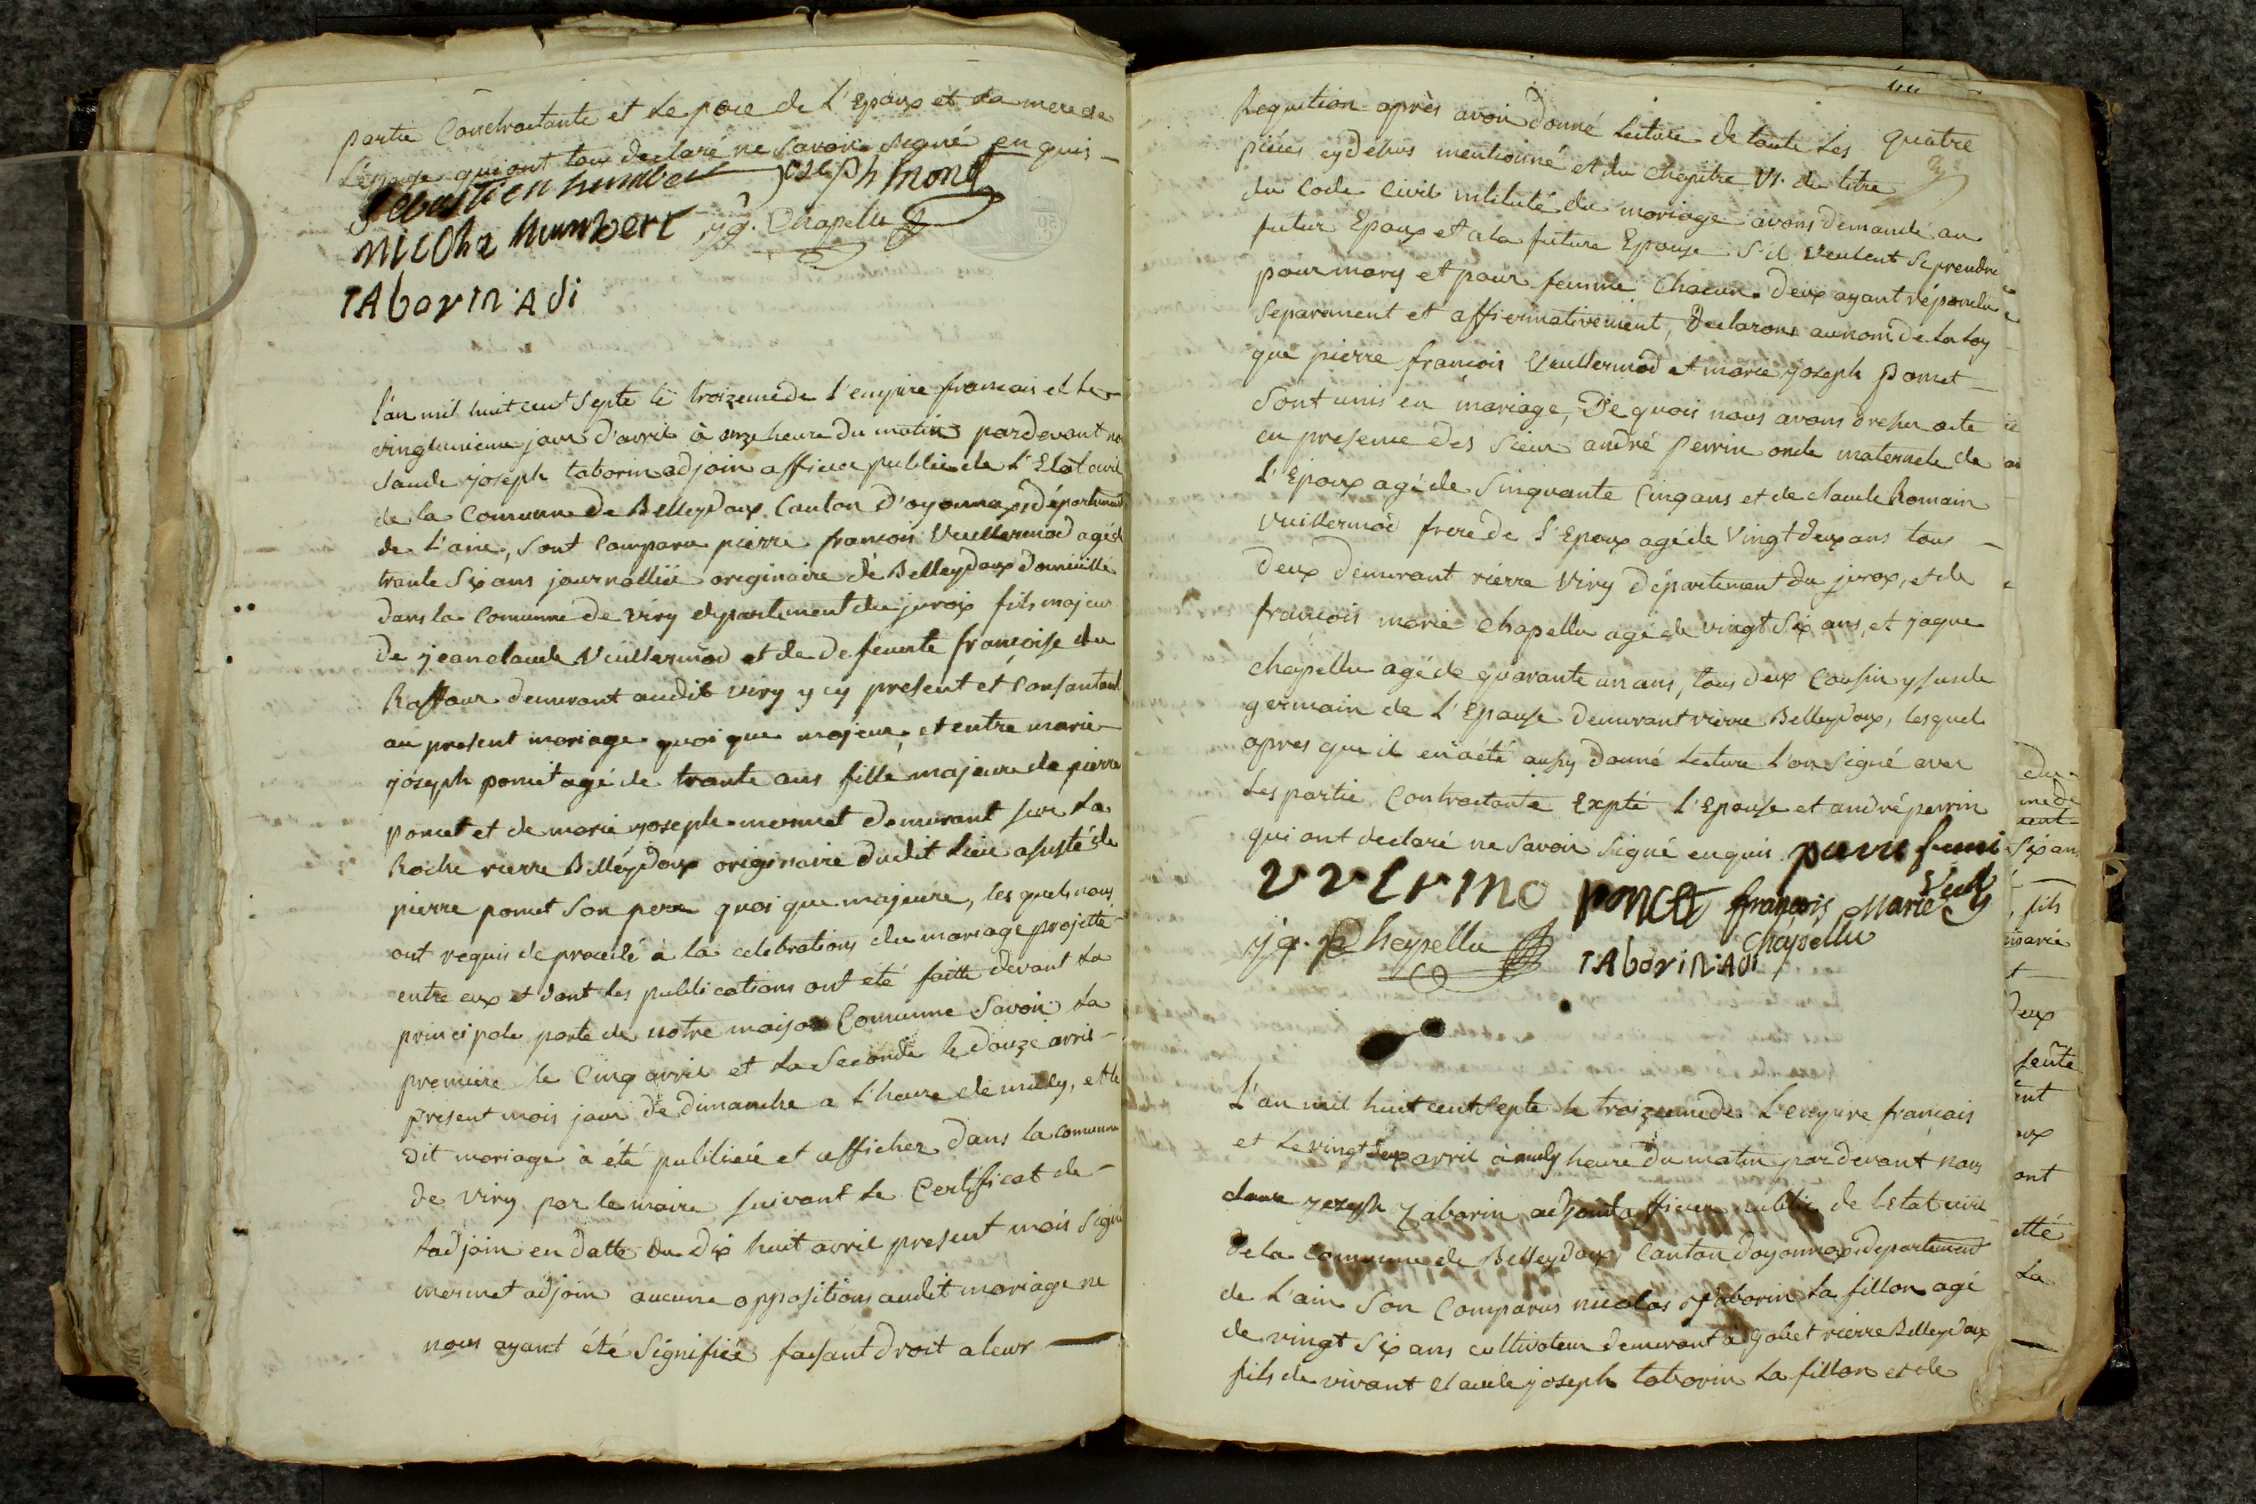 partie Contractante et le pere de L'Epoux et La mere de
L'epouse qui ont tous declaré ne Savoir Signé enquis
Sebastien humbert joseph mond
nicolas humbert jq. Chapellu
TAborin Adi
L'an mil huit cent Septe le troizeme de L'empire francais et le
vingtunieme jour d'avril à onze heure du matin pardevant no
claude joseph taborin adjoin afficier public de L'Etat civil
de la Comunne de Belleydoux Canton d'oyonnax département
de L'ain, Sont Comparu pierre francois Vuillermod agé de
trante Six ans journallié originaire de Belleydoux domicillié
dans la Comunne de viry departement du jurax fils majeur
De jean claude Vuillermod et de defeunte françoise du
Raffour demurant audit viry y cy present et Consantant
au present mariage quoi que majeur, et entre marie
joseph poncet agé de trante ans fille majeure de pierre
poncet et de marie joseph mermet demurant sur La
Roche rierre Belleydoux originaire dudit Lieu asisté de
pierre poncet Son pere quoi que majeure, les quels nous
ont requis de procedé à la celebrations du mariage projetté
entre eux et dont les publications ont été faitte devant La
principale porte de notre maison Comunne Savoir La
premiere le Cinq avril et La Seconde le douze avril
present mois jour de dimanche a L'heure de midy, et le
Dit mariage à été publiée et afficher dans la comunne
de viry par le maire suivant Le Certificat de
Ladjoin en datte du dix huit avril present mois Signé
mermet adjoin aucune oppositions audit mariage ne
nous ayant été Signifiée faisant droit a leur
Requition après avoir donné Lecture de toute Les quatre
piéces cy dessus mentionné et du chapitre VI. du titre
du Code Civil intitulé du mariage avons demandé au
futur Epoux et a la future Epouse S'il veulent Se prendre
pour mary et pour femme Chacun deux ayant répondu
Separement et affiermativement, Declarons au nom de La loy
que pierre francois Vuillermod et marie joseph Poncet
Sont unis en mariage, De quoi nous avons dresser acte
en presence des Sieur andré Perrin oncle maternele de
L'Epoux agé de Sinquante Cinq ans et de claude Romain
Vuillermod frere de L'Epoux agé de Vingt deux ans tous
Deux demurant rierre Viry Département du jurax, et de
francois marie chapellu agé de vingt Six ans, et jaque
chapellu agé de quarante un ans, tous deux Cousin ysude
germain de L'Epouse demurant rierre Belleydoux, lesquel
apres que il en a été aussy donné Lecture L'on Signé avec
Les partie Contractante Expté L'Epouse et andré perrin
qui ont declaré ne Savoir Signé enquis
poncet françois Marie
jq. Chapellu Chapellu
TAborin Adi
L'an mil huit cent Septe le troizeme de L'empire français
et Le vingt deux avril à heure du matin par devant nous
claude joseph Taborin adjoint afficier public de letat civil
de la commune de Belleydoux Canton doyonnax departement
de L'ain Son Comparus nicolas taborin La fillon agé
de vingt Six ans cultivateur demurant à Gobet rierre Belleydoux
fils de vivant Claude joseph taborin La fillon et de